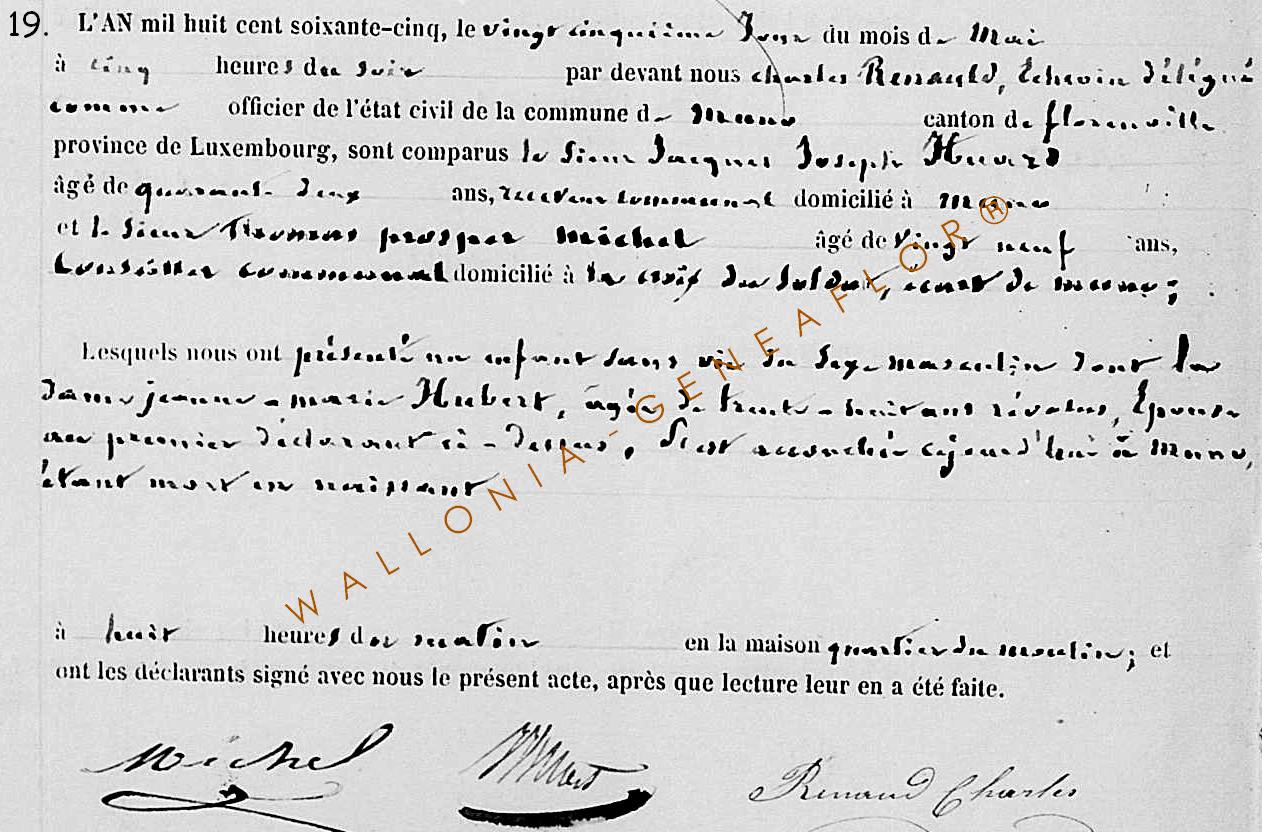 19. L'AN mil huit cent soixante-cinq, le vingt cinquième Jour du mois de Mai
à cinq heures du soir par devant nous charles Renauld, Echevin délégué
comme officier de l'état civil de la commune de Muno canton de florenville
province de Luxembourg, sont comparus le Sieur Jacques Joseph Huard
âgé de quarante deux ans, receveur communal domicilié à Muno
et le Sieur Thomas prosper Michel âgé de vingt neuf ans,
Conseiller communal domicilié à la croix du Soldat, écart de muno;
Lesquels nous ont présenté un enfant sans vie du Sexe masculin dont la
Dame jeanne-marie Hubert, âgée de trente-huit ans révolus, Epouse
au premier déclarant ci-dessus, S'est accouchée cejourd'hui à Muno,
étant mort en naissant
à huit heures du matin en la maison quartier du moulin; et
ont les déclarants signé avec nous le présent acte, après que lecture leur en a été faite.
Michel Renaud Charles
WALLONIA-GENEAFLOR®